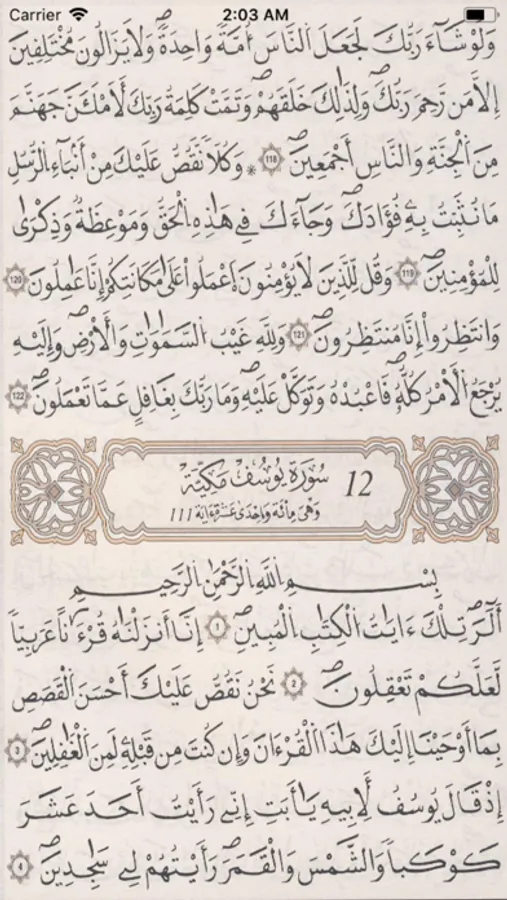 Carrier 2:03 AM
وَلَوْ شَآءَ رَبُّكَ لَجَعَلَ اَ۬لنَّاسَ أُمَّةٗ وَٰحِدَةٗۖ وَلَا يَزَالُونَ مُخْتَلِفِينَ
إِلَّا مَن رَّحِمَ رَبُّكَۖ وَلِذَٰلِكَ خَلَقَهُمْۖ وَتَمَّتْ كَلِمَةُ رَبِّكَ لَأَمْلَأَنَّ جَهَنَّمَ
مِنَ اَ۬لْجِنَّةِ وَالنَّاسِ أَجْمَعِينَۖ 118 ۞ وَكُلّاٗ نَّقُصُّ عَلَيْكَ مِنْ أَنۢبَآءِ اِ۬لرُّسُلِ
مَا نُثَبِّتُ بِهِۦ فُؤَادَكَۖ وَجَآءَكَ فِے هَٰذِهِ اِ۬لْحَقُّ وَمَوْعِظَةٞ وَذِكْر۪ىٰ
لِلْمُؤْمِنِينَۖ 119 وَقُل لِّلذِينَ لَا يُؤْمِنُونَ اَ۪عْمَلُواْ عَلَىٰ مَكَانَتِكُمُۥٓ إِنَّا عَٰمِلُونَ 120
وَانتَظِرُوٓاْ إِنَّا مُنتَظِرُونَۖ 121 وَلِلهِ غَيْبُ اُ۬لسَّمَٰوَٰتِ وَالْأَرْضِۖ وَإِلَيْهِ
يُرْجَعُ اُ۬لْأَمْرُ كُلُّهُۥۖ فَاعْبُدْهُ وَتَوَكَّلْ عَلَيْهِۖ وَمَا رَبُّكَ بِغَٰفِلٍ عَمَّا تَعْمَلُونَۖ 122
12 سُورَةُ يُوسُفَ مَكِّيَّة
وَهْىَ مِائَة وَإِحْدَىٰ عَشْرَةَ ءَايَة 111
بِسْمِ اِ۬للَّهِ اِ۬لرَّحْمَٰنِ اِ۬لرَّحِيمِ
أَلَٓرَۖ تِلْكَ ءَايَٰتُ اُ۬لْكِتَٰبِ اِ۬لْمُبِينِۖ 1 إِنَّآ أَنزَلْنَٰهُ قُرْءَٰناً عَرَبِيّاٗ
لَّعَلَّكُمْ تَعْقِلُونَۖ 2 نَحْنُ نَقُصُّ عَلَيْكَ أَحْسَنَ اَ۬لْقَصَصِ
بِمَآ أَوْحَيْنَآ إِلَيْكَ هَٰذَا اَ۬لْقُرْءَانَ وَإِن كُنتَ مِن قَبْلِهِۦ لَمِنَ اَ۬لْغَٰفِلِينَۖ 3
إِذْ قَالَ يُوسُفُ لِأَبِيهِ يَٰٓأَبَتِ إِنِّے رَأَيْتُ أَحَدَ عَشَرَ
كَوْكَباٗ وَالشَّمْسَ وَالْقَمَرَۖ رَأَيْتُهُمْ لِے سَٰجِدِينَۖ 4